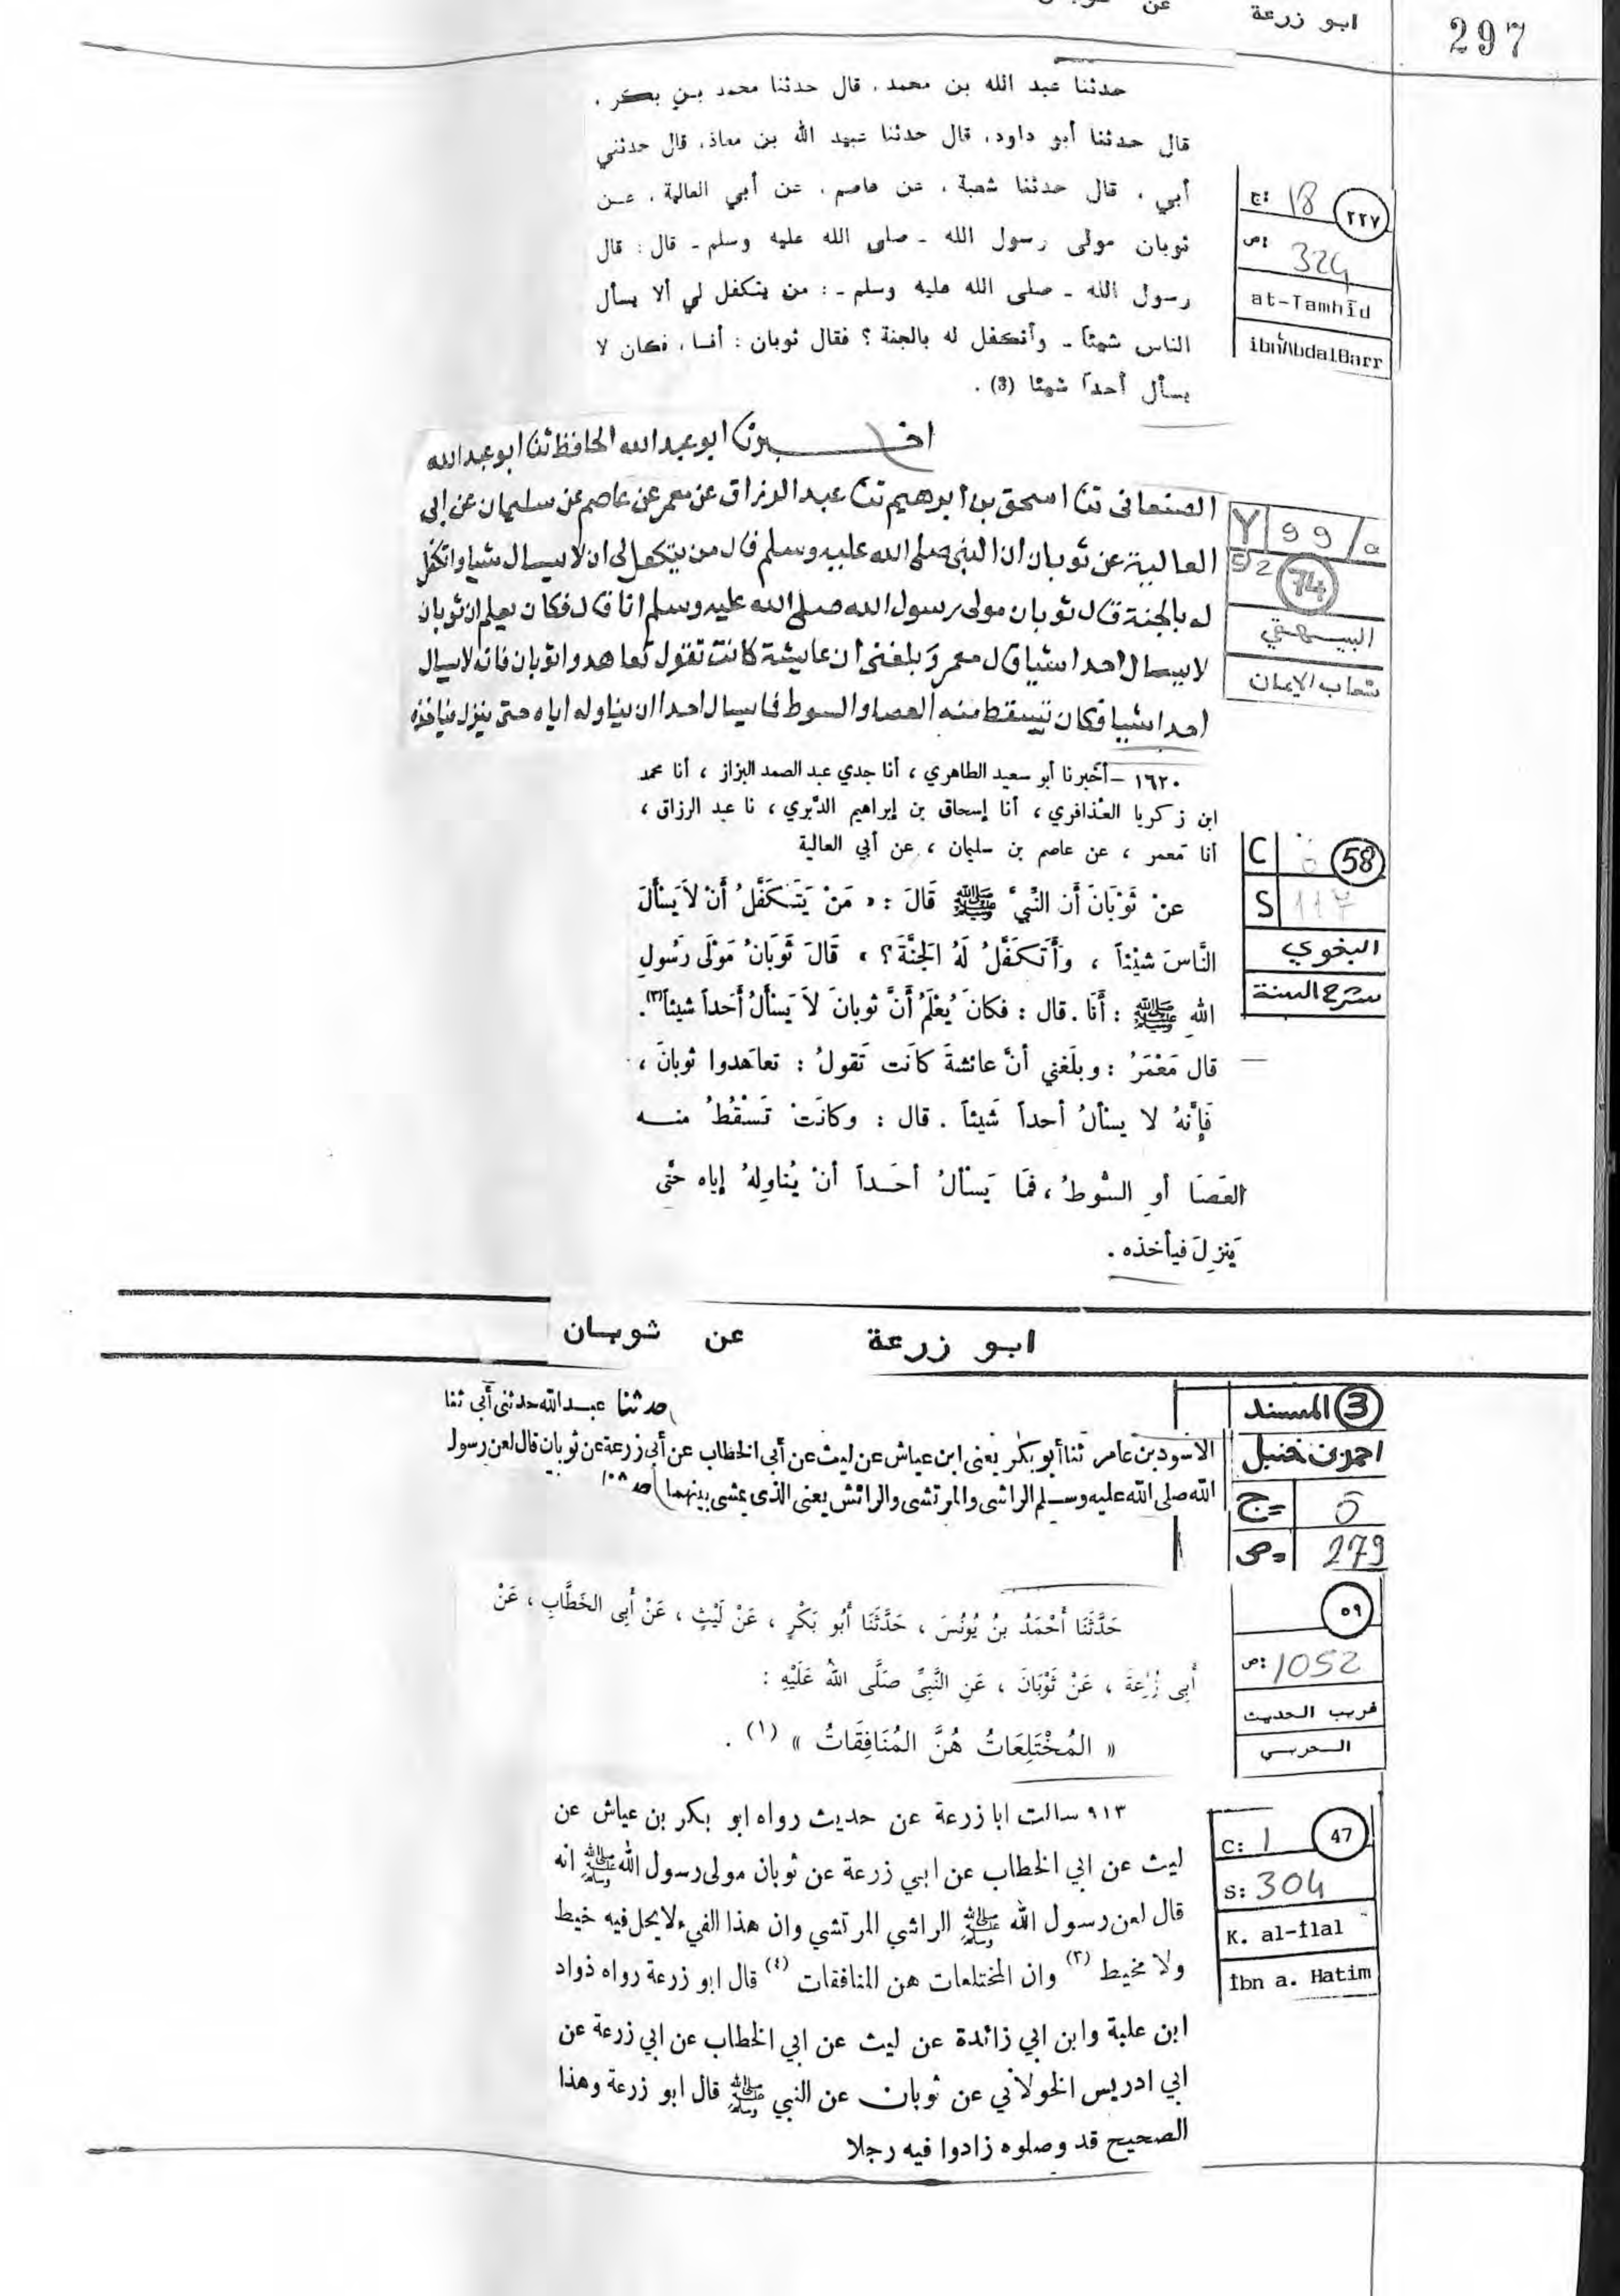 297
ابو زرعة عن ثوبان
حدثنا عبد الله بن محمد، قال حدثنا محمد بن بكر،
قال حدثنا أبو داود، قال حدثنا عبيد الله بن معاذ، قال حدثني
أبي، قال حدثنا شعبة، عن عاصم، عن أبي العالية، عن
ثوبان مولى رسول الله - صلى الله عليه وسلم - قال: قال
رسول الله - صلى الله عليه وسلم -: من يتكفل لي ألا يسأل
الناس شيئاً - وأتكفل له بالجنة؟ فقال ثوبان: أنا، فكان لا
يسأل أحداً شيئا (3).
٢٢٧
ج: 18
ص: 324
at-Tamhīd
ibn'AbdalBarr
اخبرنا ابو عبد الله الحافظ ثنا ابو عبد الله
الصنعانى ثنا اسحق بن ابرهيم ثنا عبد الرزاق عن معمر عن عاصم عن سليمان عن ابى
العالية عن ثوبان ان النبى صلى الله عليه وسلم قال من يتكفل لى ان لا يسال شيا واتكفل
له بالجنة قال ثوبان مولى رسول الله صلى الله عليه وسلم انا قال فكان يعلم ان ثوبان
لا يسال احدا شيا قال معمر وبلغنى ان عايشة كانت تقول تعاهدوا ثوبان فانه لا يسال
احدا شيا فكان تسقط منه العصا والسوط فما يسال احدا ان يناوله اياه حتى ينزل فياخذه
Y 99/a
52
74
البيهقي
شعاب الإيمان
١٦٢٠ - أخبرنا أبو سعيد الطاهري، أنا جدي عبد الصمد البزاز، أنا محمد
ابن زكريا العذافري، أنا إسحاق بن إبراهيم الدَّبري، نا عبد الرزاق،
أنا مَعمر، عن عاصم بن سليمان، عن أبي العالية
عَنْ ثَوْبَانَ أَن النَّبيَّ ﷺ قَالَ: « مَنْ يَتَكَفَّلُ أَنْ لاَ يَسْأَلَ
النَّاسَ شَيْئاً، وَأَتَكَفَّلُ لَهُ الجَنَّةَ؟ » قَالَ ثَوبَانُ مَوْلَى رَسُولِ
اللهِ ﷺ: أَنَا. قال: فكانَ يُعْلَمُ أَنَّ ثوبانَ لاَ يَسْأَلُ أَحَداً شيئاً (٣).
قال مَعْمَرُ: وبلَغني أنَّ عائشةَ كانَت تَقولُ: تعاهَدوا ثوبانَ،
فَإنَّهُ لا يسألُ أحداً شَيئاً. قال: وكانَتْ تَسْقُطُ منه
العَصَا أوِ السَّوطُ، فمَا يَسألُ أحَداً أنْ يُناوِلهُ إياه حتَّى
يَنزِلَ فيأخذه.
58
C 5
S 117
البغوي
شرح السنة
ابو زرعة عن ثوبان
حدثنا عبد الله حدثنى أبى ثنا
الاسود بن عامر ثنا أبو بكر يعنى ابن عياش عن ليث عن أبى الخطاب عن أبى زرعة عن ثوبان قال لعن رسول
الله صلى الله عليه وسلم الراشى والمرتشى والرائش يعنى الذى يمشى بينهما
3 المسند
احمد بن حنبل
ج= 5
ص= 279
حَدَّثَنَا أَحْمَدُ بنُ يُونُسَ، حَدَّثَنَا أَبُو بَكْرٍ، عَنْ لَيْثٍ، عَنْ أَبِى الخَطَّابِ، عَنْ
أَبِى زُرْعَةَ، عَنْ ثَوْبَانَ، عَنِ النَّبِىِّ صَلَّى اللهُ عَلَيْهِ:
« المُخْتَلِعَاتُ هُنَّ المُنَافِقَاتُ » (١).
٥٩
ص: 1052
غريب الحديث
الحربي
٩١٣ سالت ابا زرعة عن حديث رواه ابو بكر بن عياش عن
ليث عن ابي الخطاب عن ابي زرعة عن ثوبان مولى رسول الله ﷺ انه
قال لعن رسول الله ﷺ الراشي المرتشي وان هذا الفيء لا يحل فيه خيط
ولا مخيط (٣) وان المختلعات هن المنافقات (٤) قال ابو زرعة رواه ذواد
ابن علبة وابن ابي زائدة عن ليث عن ابي الخطاب عن ابي زرعة عن
ابي ادريس الخولاني عن ثوبان عن النبي ﷺ قال ابو زرعة وهذا
الصحيح قد وصلوه زادوا فيه رجلا
47
C: 1
S: 304
K. al-İlal
İbn a. Hatim